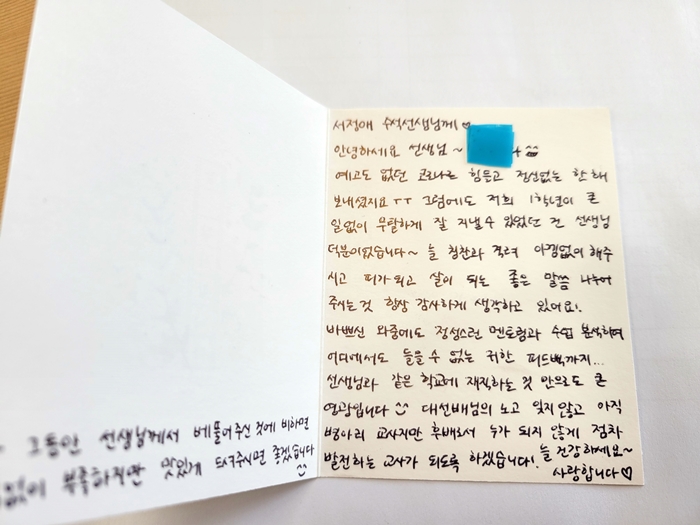 서정애 수석선생님께♡
안녕하세요 선생님~
예고도 없던 코로나로 힘든고 정신없는 한 해
보내셨지요 ㅜㅜ 그럼에도 저희 1학년이 큰
일없이 무탈하게 잘 지낼 수 있었던 건 선생님
덕분이었습니다~ 늘 칭찬과 격려 아낌없이 해주
시고 피가 되고 살이 되는 좋은 말씀 나누어
주시는 것 항상 감사하게 생각하고 있어요!
바쁘신 와중에도 정성스런 멘토링과 수업 분석하며
어디에서도 들을 수 없는 귀한 피드백까지...
선생님과 같은 학교에 재직하는 것 만으로도 큰
영광입니다 ^^ 대선배님의 노고 잊지않고 아직
병아리 교사지만 후배로서 누가 되지 않게 점차
발전하는 교사가 되도록 하겠습니다! 늘 건강하세요~
사랑합니다♡
그동안 선생님께서 베풀어주신 것에 비하면
없이 부족하지만 맛있게 드셔주시면 좋겠습니다